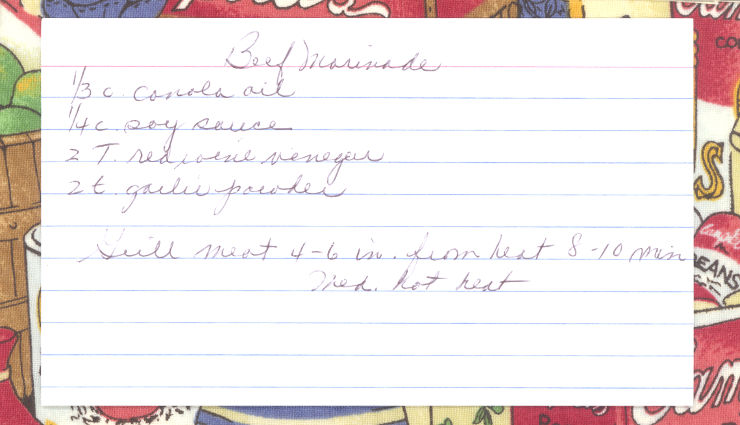 Beef Marinade
1/3 c. canola oil
1/4 c. soy sauce
2 T. red wine vinegar
2 t. garlic powder
Grill meat 4-6 in. from heat 8-10 min
Med. hot heat
Campbell's
BEANS